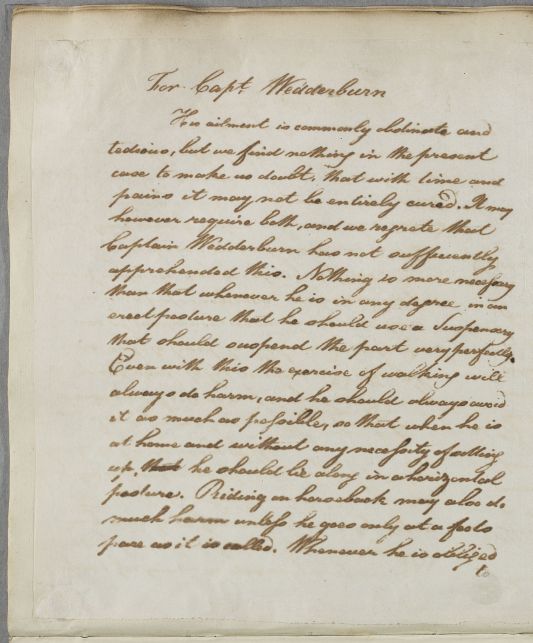 For Capt. Wedderburn
His ailment is commonly obstinate and
tedious, but we find nothing in the present
case to make us doubt, that with time and
pains it may not be entirely cured. It may
however require both, and we regrete that
Captain Wedderburn has not sufficiently
apprehended this. Nothing is more necessary
than that whenever he is in any degree in an
erect posture that he should use a Suspensory
that should suspend the part very perfectly.
Even with this the exercise of walking will
always do harm, and he should always avoid
it as much as possible, so that when he is
at home and without any necessity of sitting
up, that he should lie along in a horizontal
posture. Riding on horseback may also do
much harm unless he goes only at a foots
pace as it is called. Whenever he is obliged
to